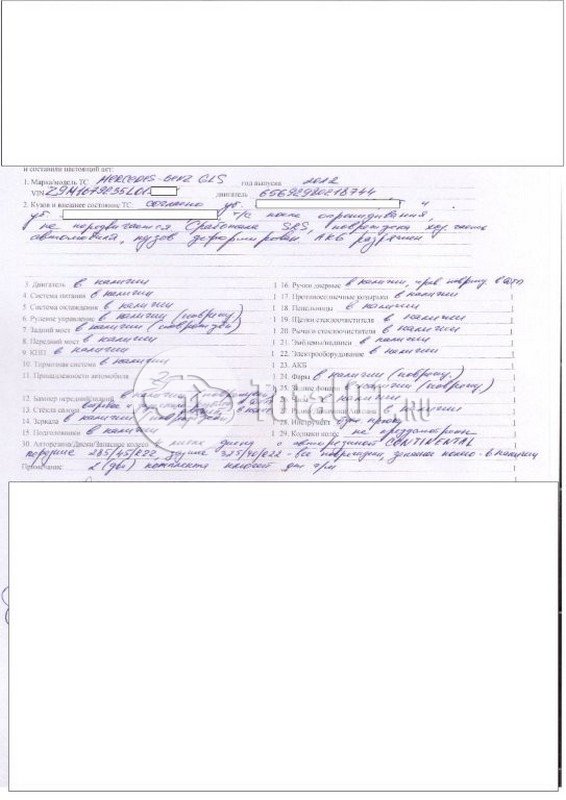 и составили настоящий акт:
1. Марка/модель ТС MERCEDES-BENZ GLS год выпуска
VIN двигатель
2. Кузов и внешнее состояние ТС согласно уб. ч
уб. Т/С после опрокидывания,
не передвигается. Сработала SRS, повреждена ход. часть
автомобиля, кузов деформирован АКБ разряжен
3. Двигатель в наличии
4. Система питания в наличии
5. Система охлаждения в наличии
6. Рулевое управление в наличии (поврежд)
7. Задний мост в наличии (поврежден)
8. Передний мост в наличии
9. КПП в наличии
10. Тормозная система в наличии
11. Принадлежности автомобиля
12. Бампер передний/задний в наличии
13. Стёкла салона
14. Зеркала в наличии
15. Подголовники в наличии
16. Ручки дверные в наличии, прав поврежд. в ДТП
17. Противосолнечные козырьки в наличии
18. Пепельницы в наличии
19. Щётки стеклоочистителя в наличии
20. Рычаги стеклоочистителя в наличии
21. Эмблемы/надписи в наличии
22. Электрооборудование в наличии
23. АКБ
24. Фары в наличии (поврежд.)
25. Задние фонари в наличии (поврежд)
в наличии
в наличии
28. Инструмент
29. Колпаки колес не предусмотрены
30. Авторезина/Диски/Запасное колесо в литых дисках с авторезиной CONTINENTAL
передние 285/45/R22, задние 325/40/R22 - все повреждены, запасное колесо - в наличии
Примечание 2 (два) комплекта ключей
Total01.RU